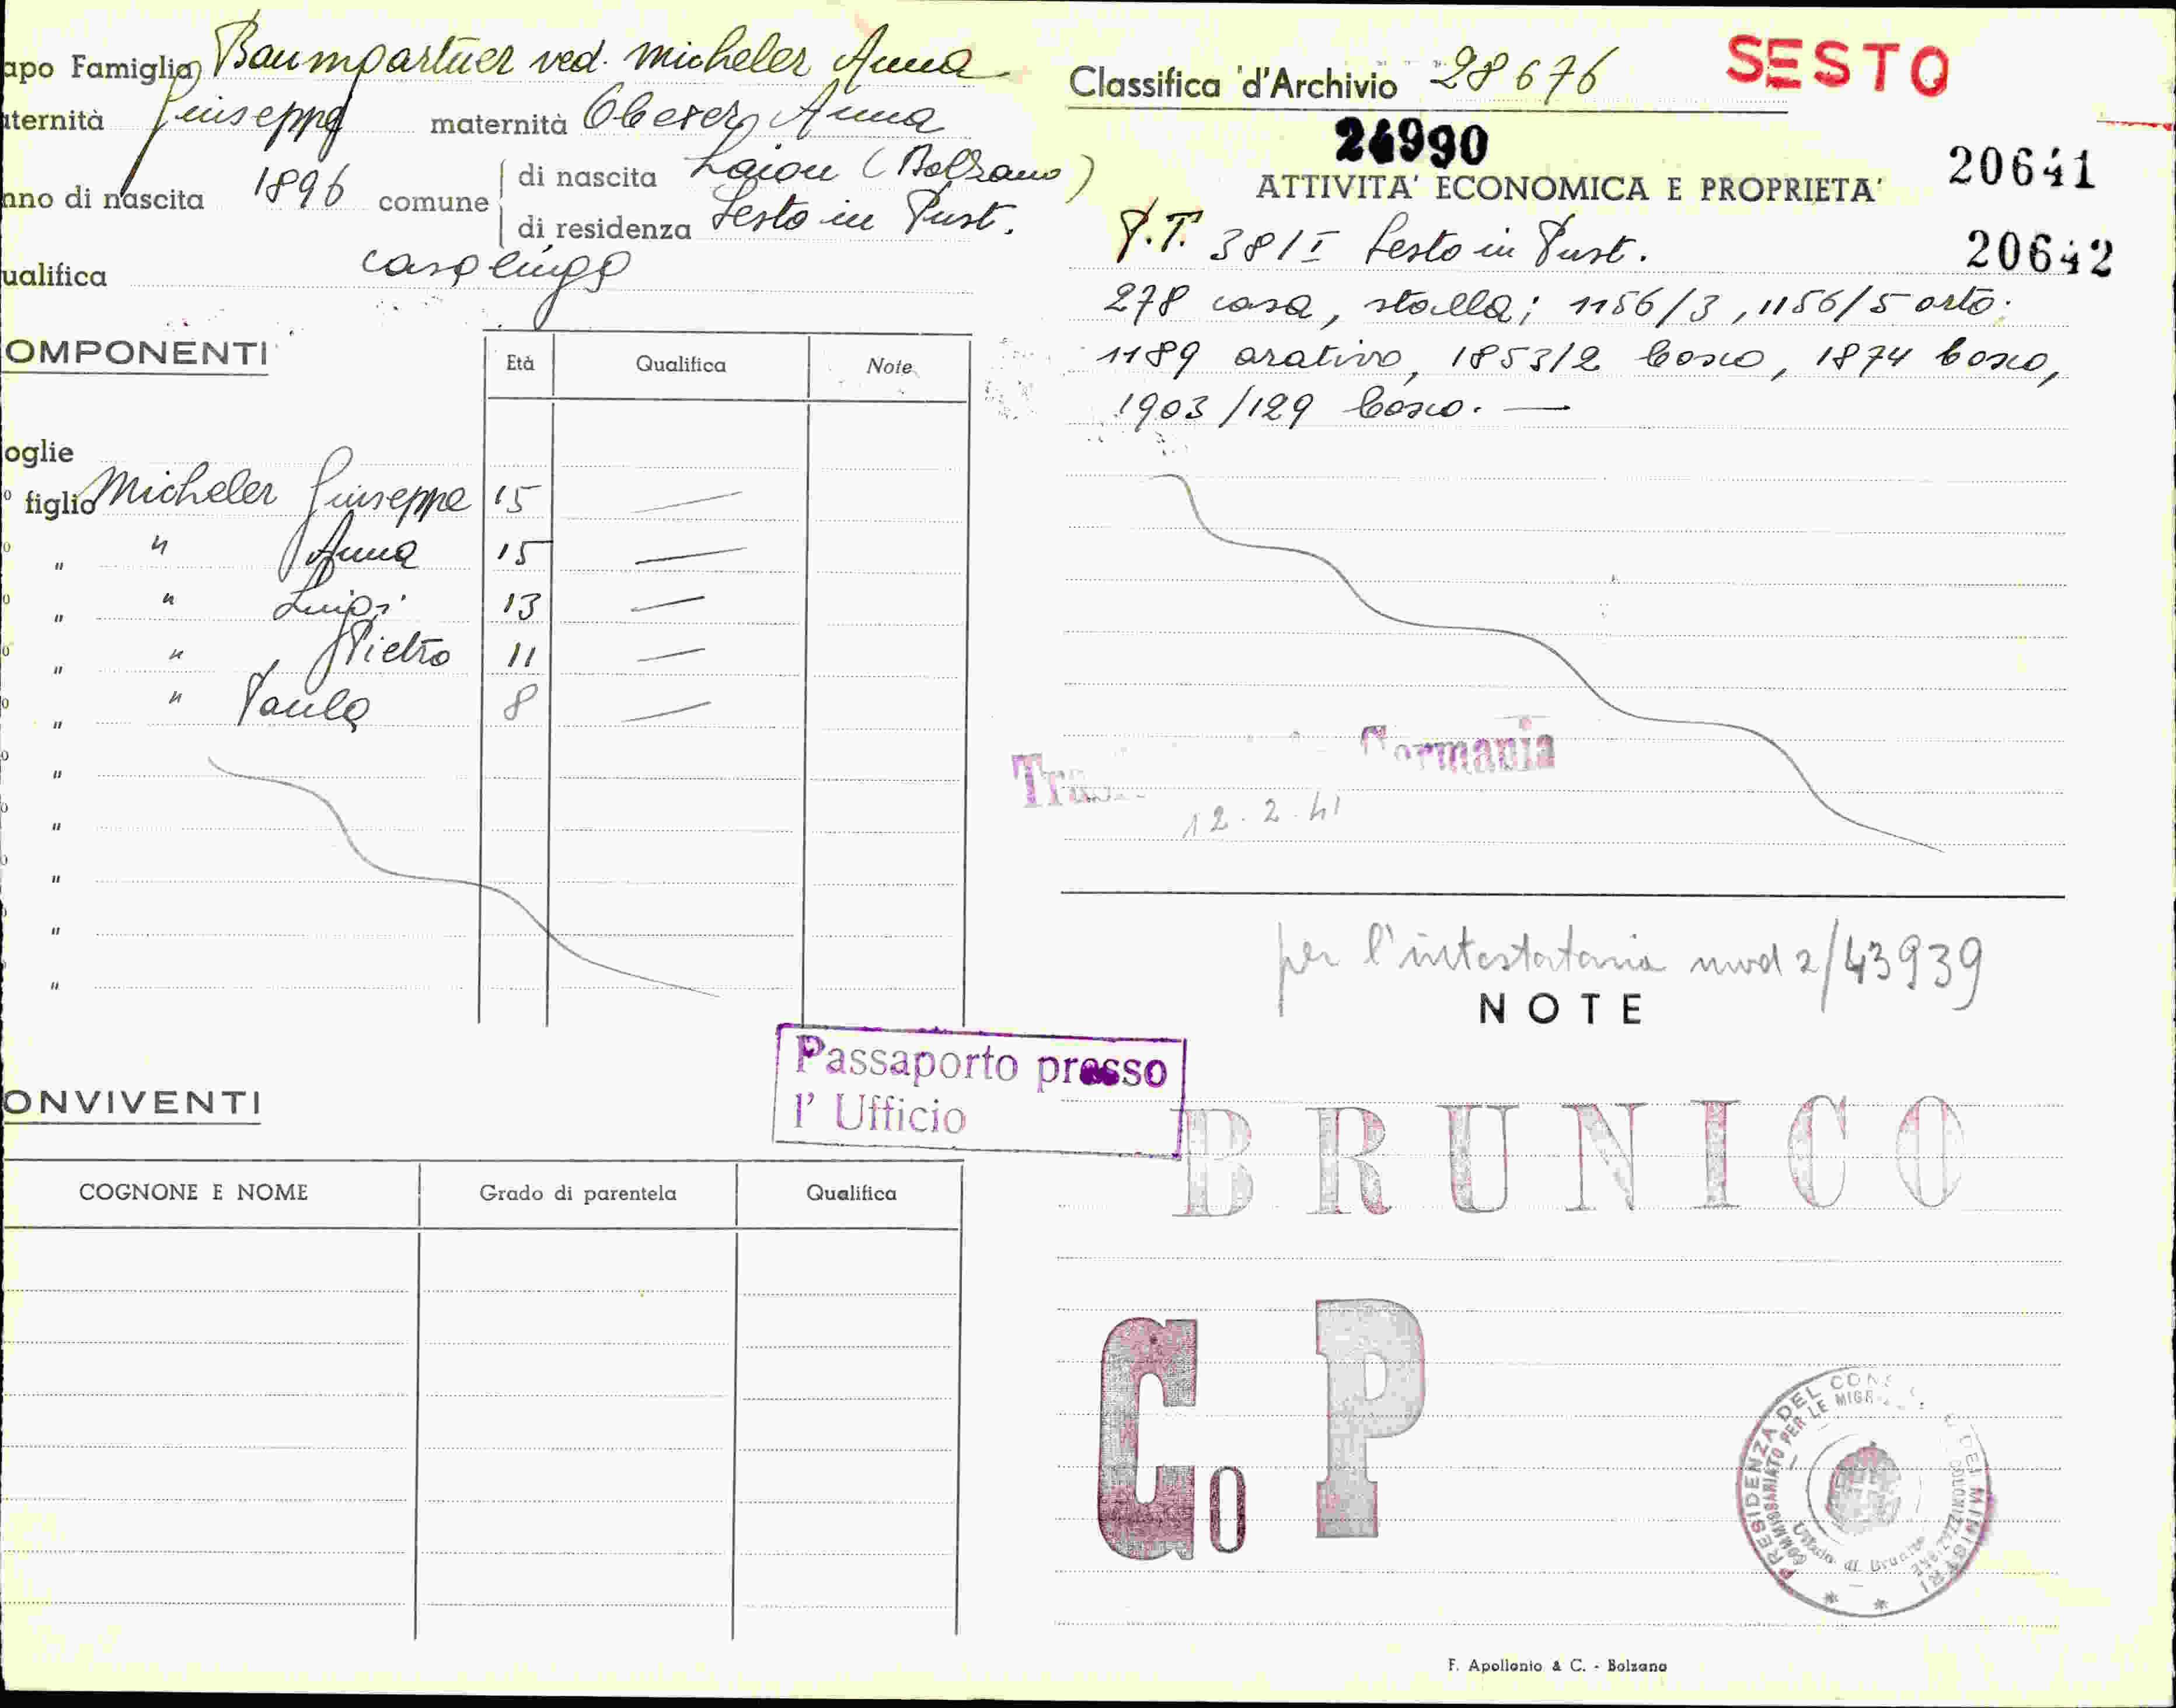 apo Famiglia Baumgartner ved. Micheler Anna
aternità Giuseppe maternità Oberer Anna
nno di nascita 1896 comune di nascita Laion (Bolzano)
di residenza Sesto in Pust.
ualifica casalinga
OMPONENTI
Età Qualifica Note
oglie
o figlio Micheler Giuseppe 15 —
o " " Anna 15 —
o " " Luigi 13 —
o " " Pietro 11 —
o " " Paula 8 —
o "
o "
o "
"
"
ONVIVENTI
COGNONE E NOME Grado di parentela Qualifica
Classifica d'Archivio 28676
SESTO
24990
20641
ATTIVITA' ECONOMICA E PROPRIETA'
20642
P.T. 38/I Sesto in Pust.
278 casa, stalla; 1156/3, 1156/5 orto.
1189 arativo, 1853/2 bosco, 1874 bosco,
1903/129 bosco. —
Germania
12.2.41
per l'intestataria mod 2/43939
NOTE
Passaporto presso
l' Ufficio
BRUNICO
Co P
PRESIDENZA DEL CONS DEI MINISTRI
COMMISSARIATO PER LE MIGR COLONIZZ
Ufficio di Brunico
F. Apollonio & C. - Bolzano